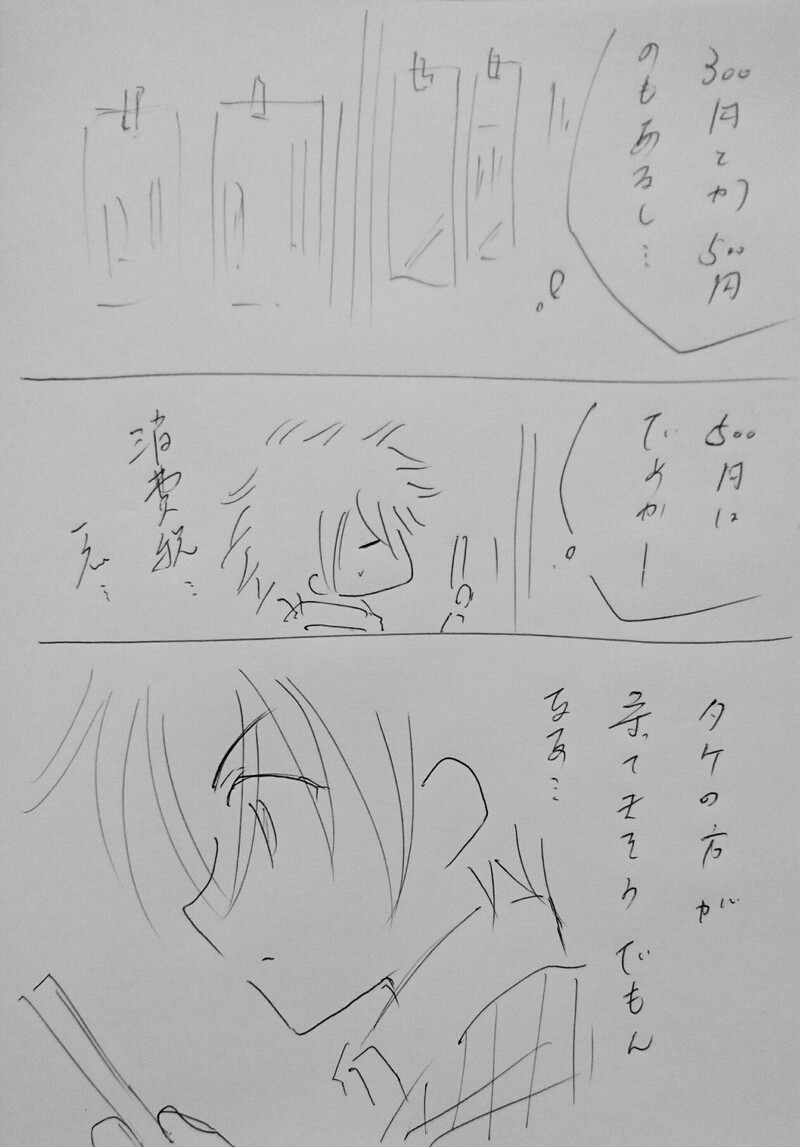 300円とか500円
のもあるし…
500円は
でかかー
消費税…
え…
タケの方が
来てきそうだもん
なあ…